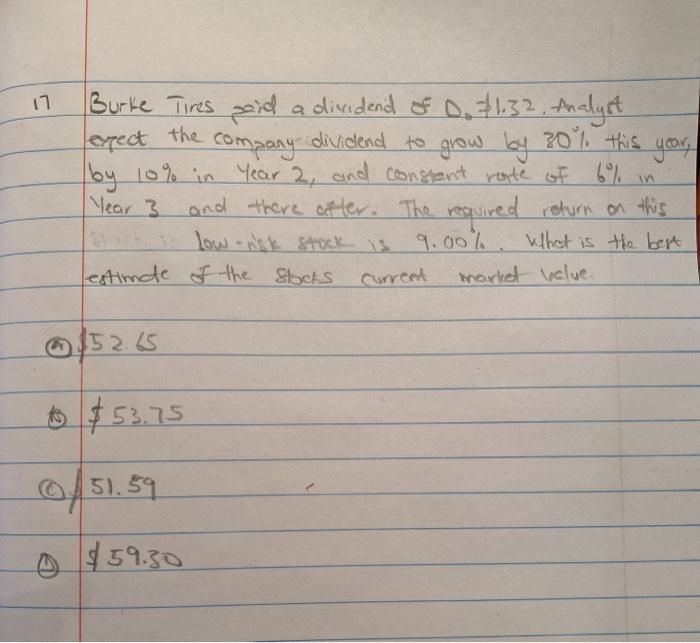 17 Burke Tires paid a dividend of D₀ $1.32. Analyst
expect the company dividend to grow by 30% this year,
by 10% in Year 2, and constant rate of 6% in
Year 3 and there after. The required return on this
low-risk stock is 9.00%. What is the best
estimate of the Stocks current market value.
A $52.65
B $53.75
C $51.59
D $59.30